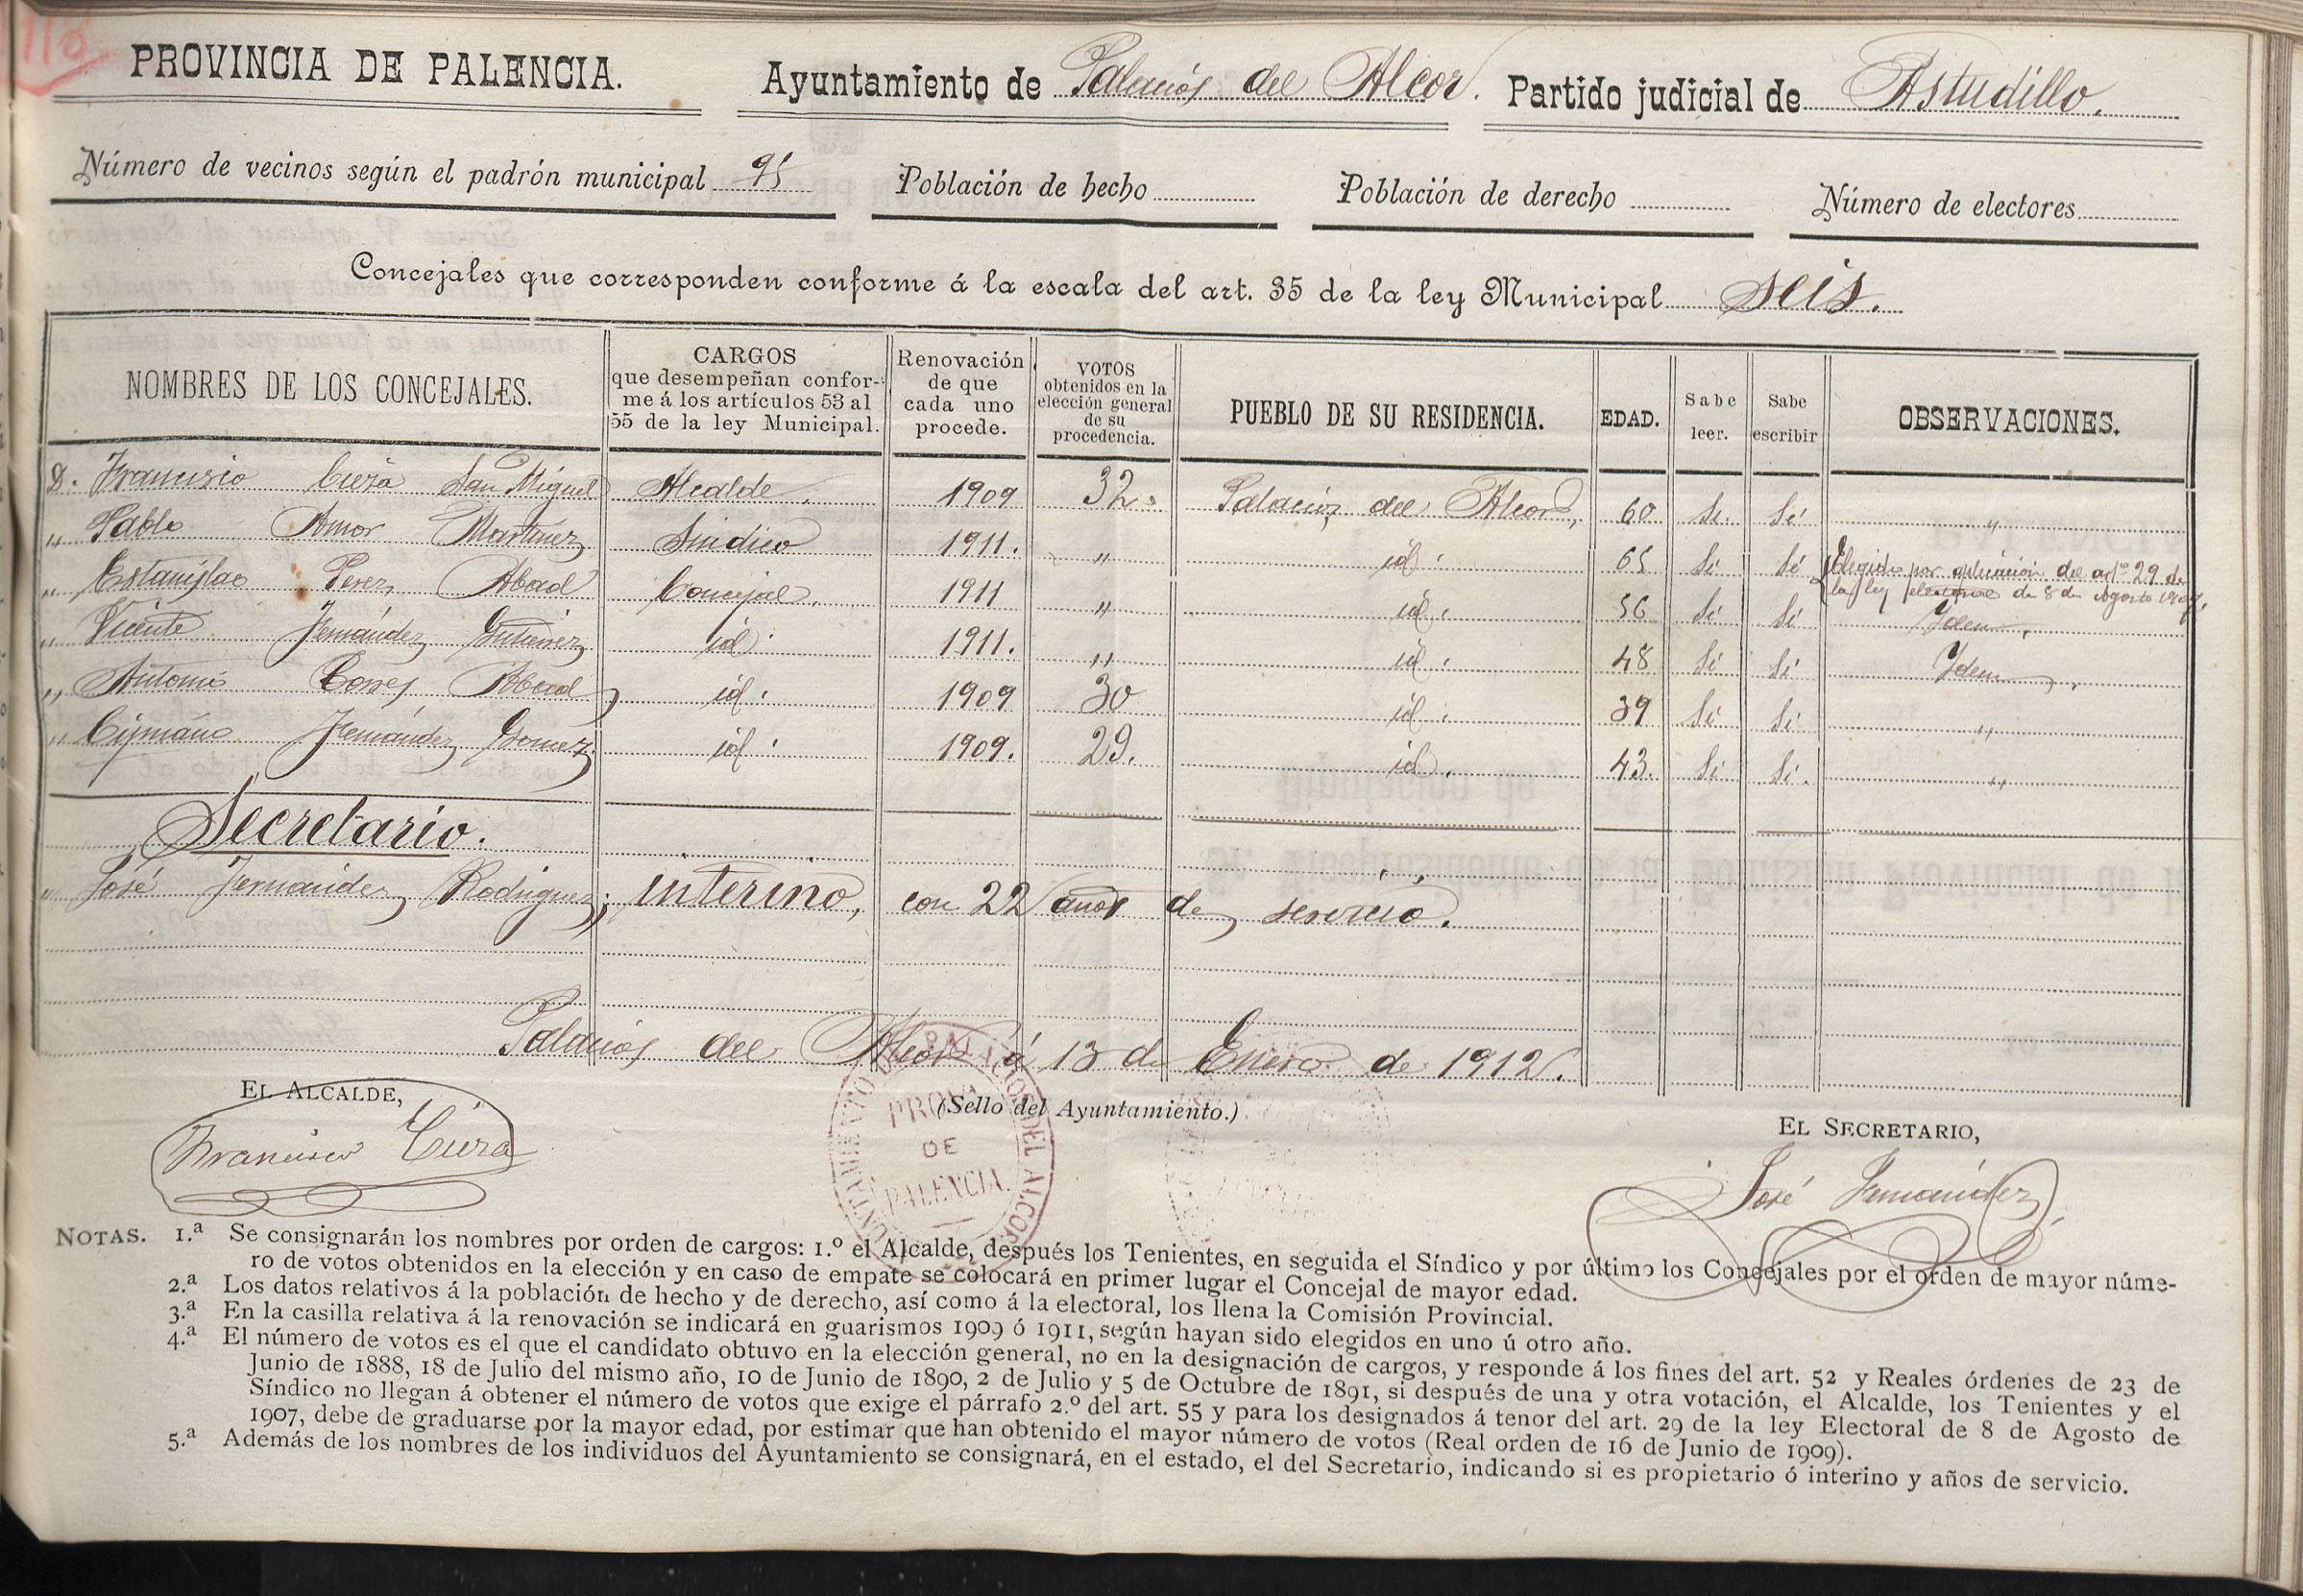 118
PROVINCIA DE PALENCIA. Ayuntamiento de Palacios del Alcor. Partido judicial de Astudillo.
Número de vecinos según el padrón municipal 95 Población de hecho Población de derecho Número de electores
Concejales que corresponden conforme á la escala del art. 35 de la ley Municipal seis.
NOMBRES DE LOS CONCEJALES. CARGOS que desempeñan confor- me á los artículos 53 al 55 de la ley Municipal. Renovación de que cada uno procede. VOTOS obtenidos en la elección general de su procedencia. PUEBLO DE SU RESIDENCIA. EDAD. Sabe leer. Sabe escribir OBSERVACIONES.
D. Francisco Cieza San Miguel Alcalde. 1909 32. Palacios del Alcor, 60 Si. Si "
" Pablo Amor Martinez Sindico 1911. " id. 65 Si Si Elegido por aplicacion del artº 29 de la ley electoral de 8 de Agosto 1907.
" Estanislao Perez Abad Concejal. 1911 " id. 56 Si Si Idem.
" Vicente Fernández Gutierrez id. 1911. " id. 48 Si Si Idem.
" Antonio Torres Abad id. 1909 30 id. 39 Si Si "
" Cipriano Fernández Gomez id. 1909. 29. id. 43. Si Si. "
Secretario.
" José Fernandez Rodriguez; interino, con 22 años de servicio.
Palacios del Alcor á 13 de Enero de 1912.
EL ALCALDE, (Sello del Ayuntamiento.) EL SECRETARIO,
Francisco Cieza José Fernández
AYUNTAMIENTO DE PALACIOS DEL ALCOR
PROVª
DE
PALENCIA.
NOTAS. 1.ª Se consignarán los nombres por orden de cargos: 1.º el Alcalde, después los Tenientes, en seguida el Síndico y por último los Concejales por el orden de mayor núme-
ro de votos obtenidos en la elección y en caso de empate se colocará en primer lugar el Concejal de mayor edad.
2.ª Los datos relativos á la población de hecho y de derecho, así como á la electoral, los llena la Comisión Provincial.
3.ª En la casilla relativa á la renovación se indicará en guarismos 1909 ó 1911, según hayan sido elegidos en uno ú otro año.
4.ª El número de votos es el que el candidato obtuvo en la elección general, no en la designación de cargos, y responde á los fines del art. 52 y Reales órdenes de 23 de
Junio de 1888, 18 de Julio del mismo año, 10 de Junio de 1890, 2 de Julio y 5 de Octubre de 1891, si después de una y otra votación, el Alcalde, los Tenientes y el
Síndico no llegan á obtener el número de votos que exige el párrafo 2.º del art. 55 y para los designados á tenor del art. 29 de la ley Electoral de 8 de Agosto de
1907, debe de graduarse por la mayor edad, por estimar que han obtenido el mayor número de votos (Real orden de 16 de Junio de 1909).
5.ª Además de los nombres de los individuos del Ayuntamiento se consignará, en el estado, el del Secretario, indicando si es propietario ó interino y años de servicio.